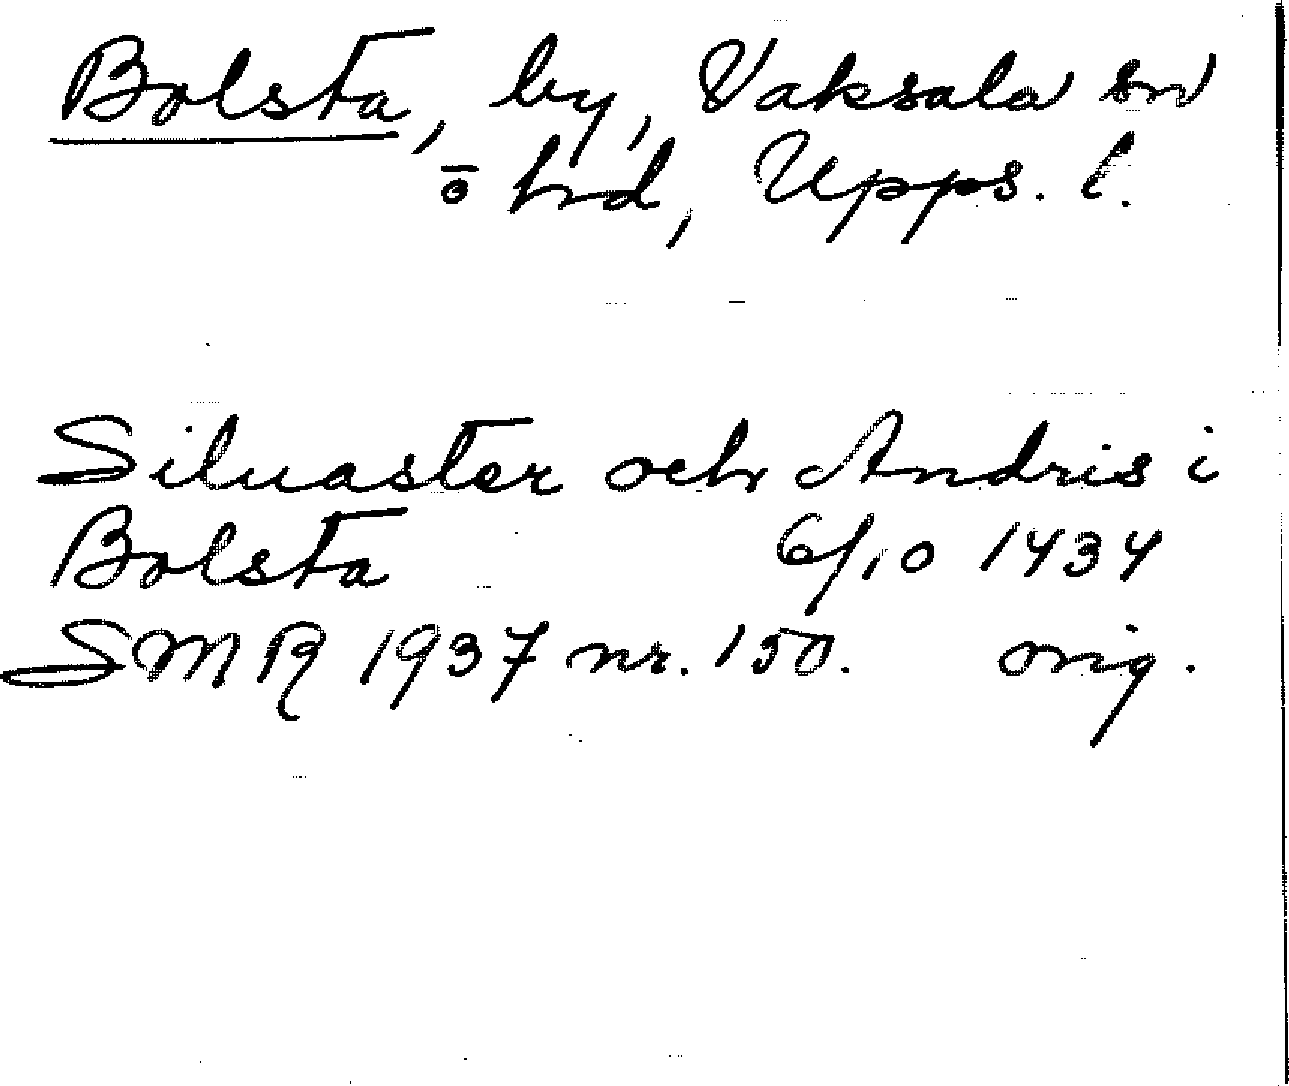 Bolsta, by, Vaksala sn
ō hd, Upps. l.
Siluaster och Andris i
Bolsta 6/10 1434
SMR 1937 nr. 150. orig.